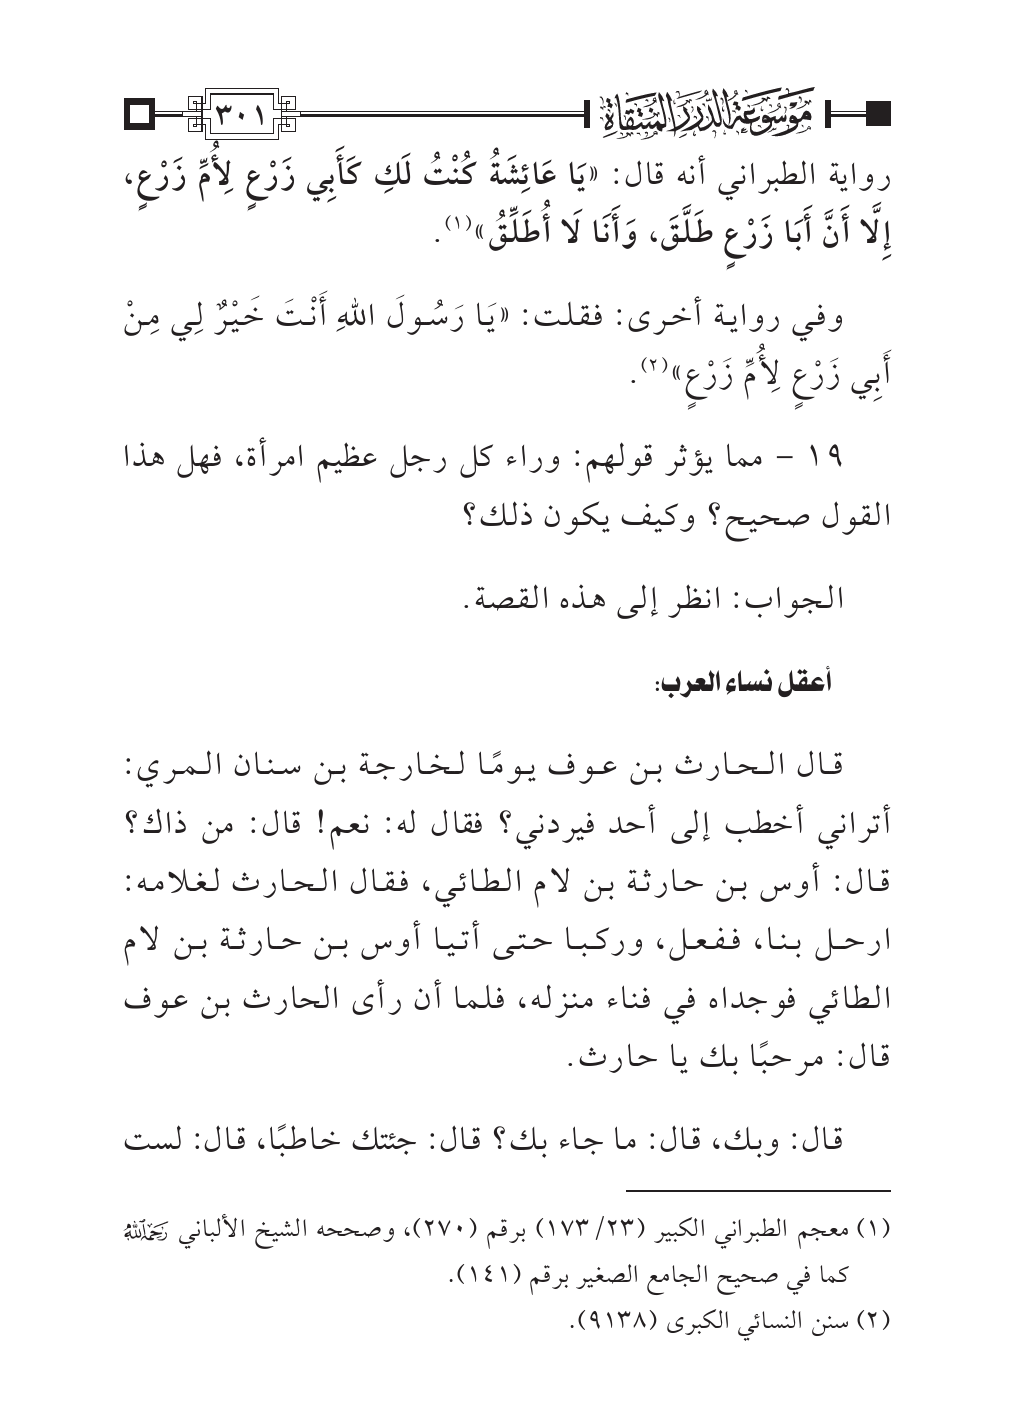 موسوعة الدرر المنتقاة
٣٠١
رواية الطبراني أنه قال: «يَا عَائِشَةُ كُنْتُ لَكِ كَأَبِي زَرْعٍ لِأُمِّ زَرْعٍ،
إِلَّا أَنَّ أَبَا زَرْعٍ طَلَّقَ، وَأَنَا لَا أُطَلِّقُ»(١).
وفي رواية أخرى: فقلت: «يَا رَسُولَ اللهِ أَنْتَ خَيْرٌ لِي مِنْ
أَبِي زَرْعٍ لِأُمِّ زَرْعٍ»(٢).
١٩ – مما يؤثر قولهم: وراء كل رجل عظيم امرأة، فهل هذا
القول صحيح؟ وكيف يكون ذلك؟
الجواب: انظر إلى هذه القصة.
أعقل نساء العرب:
قال الحارث بن عوف يومًا لخارجة بن سنان المري:
أتراني أخطب إلى أحد فيردني؟ فقال له: نعم! قال: من ذاك؟
قال: أوس بن حارثة بن لام الطائي، فقال الحارث لغلامه:
ارحل بنا، ففعل، وركبا حتى أتيا أوس بن حارثة بن لام
الطائي فوجداه في فناء منزله، فلما أن رأى الحارث بن عوف
قال: مرحبًا بك يا حارث.
قال: وبك، قال: ما جاء بك؟ قال: جئتك خاطبًا، قال: لست
(١) معجم الطبراني الكبير (٢٣/ ١٧٣) برقم (٢٧٠)، وصححه الشيخ الألباني رحمه الله
كما في صحيح الجامع الصغير برقم (١٤١).
(٢) سنن النسائي الكبرى (٩١٣٨).